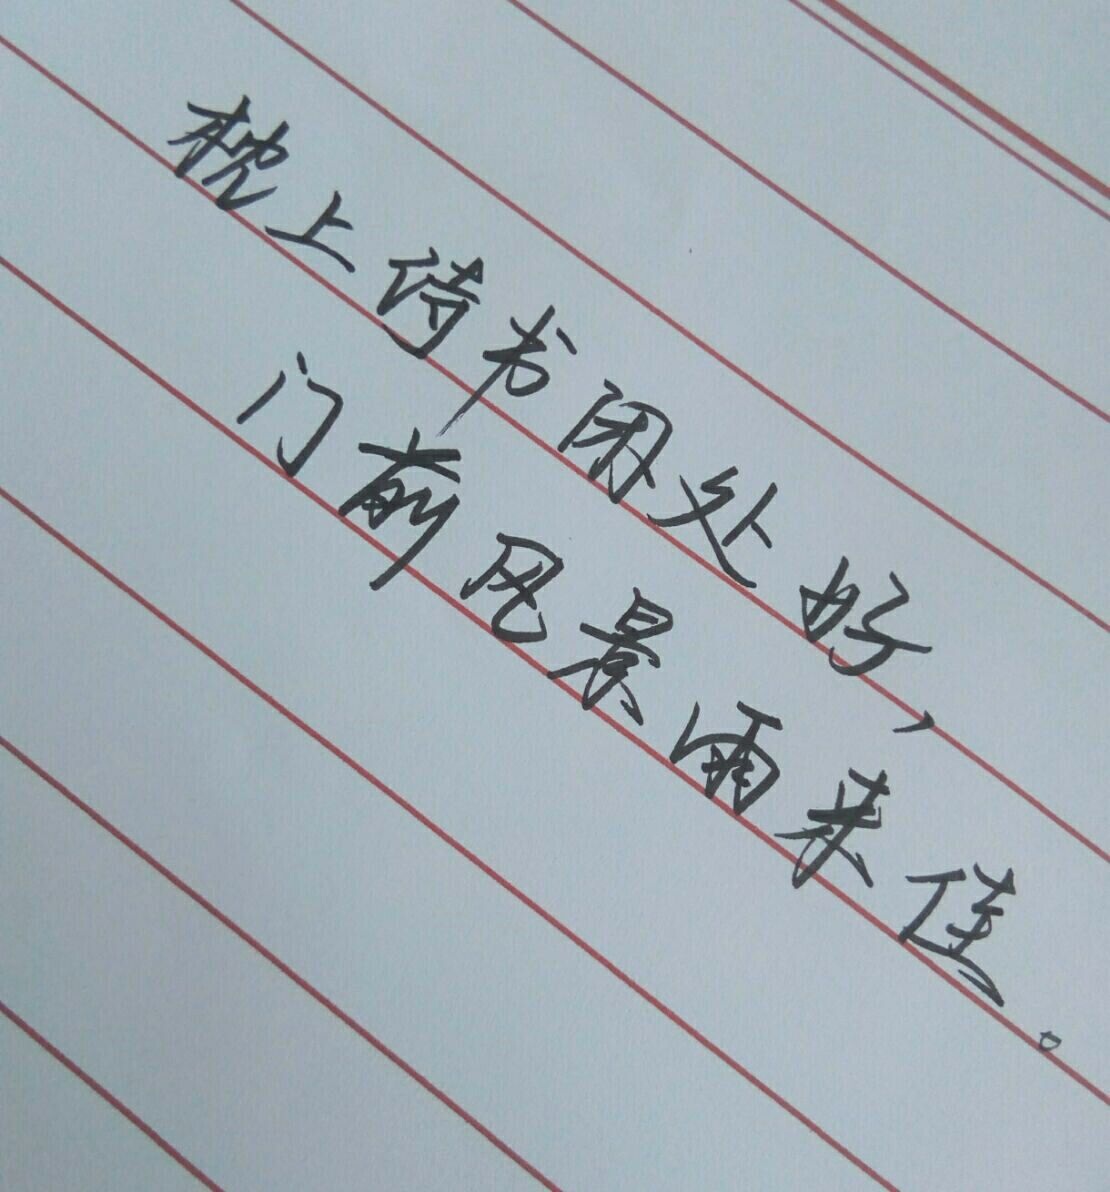 枕上诗书闲处好，
门前风景雨来佳。